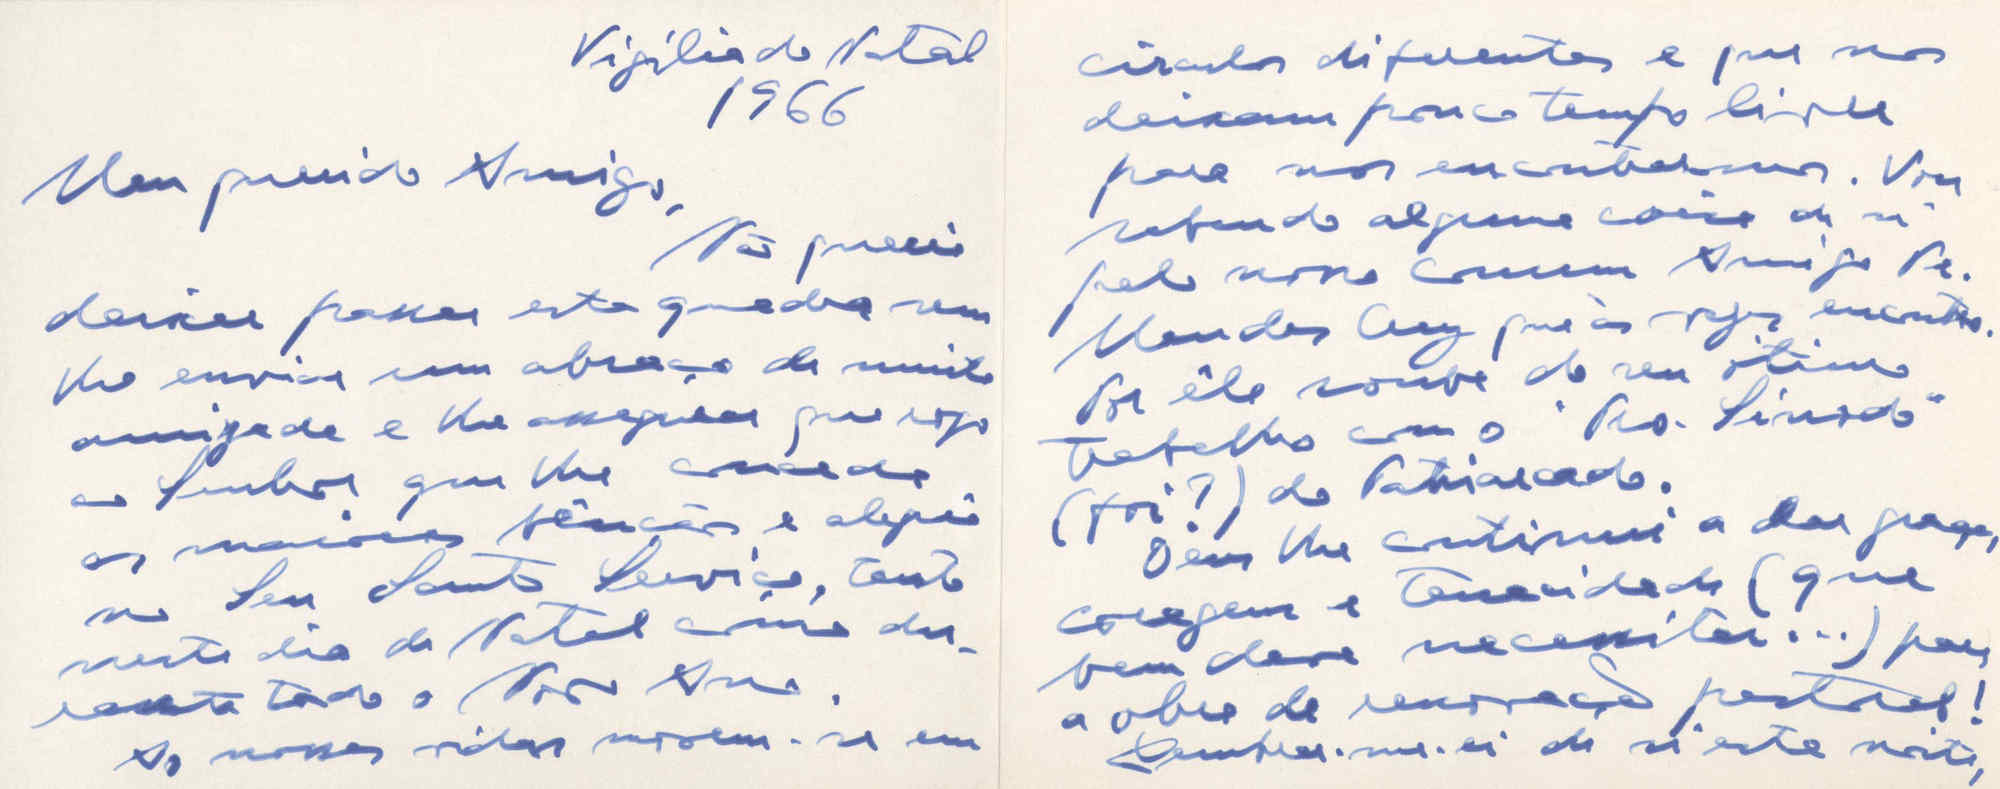 Vigília do Natal
1966
Meu querido Amigo,
Não queria
deixar passar esta quadra sem
lhe enviar um abraço de muita
amizade e lhe assegurar que rogo
ao Senhor que lhe conceda
as maiores bênçãos e alegria
no Seu Santo Serviço, tanto
neste dia de Natal como du-
rante todo o Novo Ano.
As nossas vidas movem-se em
círculos diferentes e que nos
deixam pouco tempo livre
para nos encontrarmos. Vou
sabendo alguma coisa de si
pelo nosso comum Amigo Pe.
Mendes que às vezes encontro.
Por êle soube do seu ótimo
trabalho com o "Pro-Sínodo"
(foi?) do Patriarcado.
Deus lhe continui a dar graça,
coragem e tenacidade (que
bem deve necessitar...) para
a obra de renovação pastoral!
Lembrar-me-ei de si esta noite,